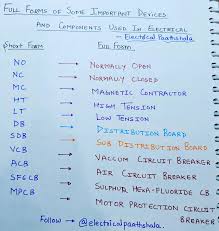 Full Forms of Some Important Devices
and Components Used In Electrical
- Electrical Paathshala
Short Form Full Form
NO → Normally Open
NC → Normally Closed
MC → Magnetic Contractor
HT → High Tension
LT → Low Tension
DB → Distribution Board
SDB → Sub Distribution Board
VCB → Vaccum Circuit Breaker
ACB → Air Circuit Breaker
SF6CB → Sulphur Hexa-Fluoride CB
MPCB → Motor Protection Circuit
Breaker
Follow → @electricalpaathshala.